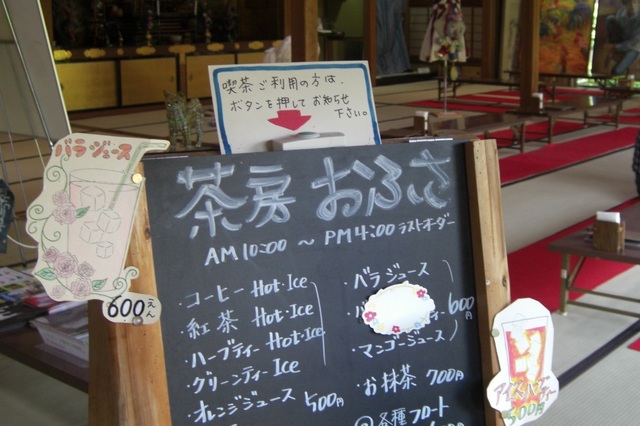 喫茶ご利用の方は、
ボタンを押してお知らせ
下さい。
バラジュース
600えん
茶房 おふさ
AM 10:00 ～ PM 4:00 ラストオーダー
・コーヒー Hot・Ice
・紅茶 Hot・Ice
・ハーブティー Hot・Ice
・グリーンティー Ice
・オレンジジュース 500円
・バラジュース
600円
・マンゴージュース
・お抹茶 700円
各種フロート
アイスハーブティー
500円